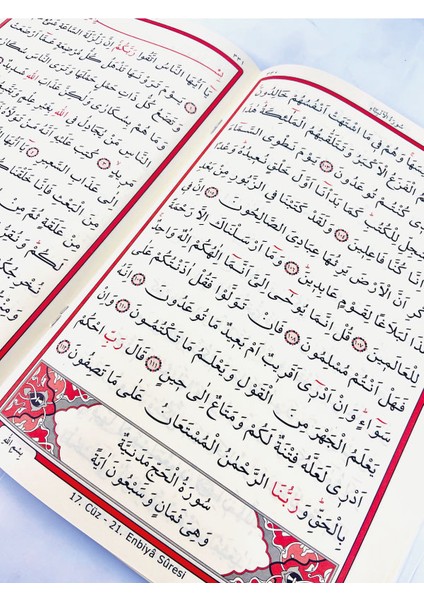 سُورَةُ الْاَنْبِيَاءِ
وَهُمْ فِي مَا اشْتَهَتْ اَنْفُسُهُمْ خَالِدُونَ
الْفَزَعُ الْاَكْبَرُ وَتَتَلَقّٰيهُمُ الْمَلٰٓئِكَةُ هٰذَا
كُنْتُمْ تُوعَدُونَ ﴿١٠٣﴾ يَوْمَ نَطْوِي السَّمَٓاءَ
لِلْكُتُبِ كَمَا بَدَأْنَٓا اَوَّلَ خَلْقٍ نُعِيدُهُ وَعْدًا
اِنَّا كُنَّا فَاعِلِينَ ﴿١٠٤﴾ وَلَقَدْ كَتَبْنَا فِي الزَّبُورِ مِنْ بَعْدِ
اَنَّ الْاَرْضَ يَرِثُهَا عِبَادِيَ الصَّالِحُونَ ﴿١٠٥﴾ اِنَّ فِي
هٰذَا لَبَلَاغًا لِقَوْمٍ عَابِدِينَ ﴿١٠٦﴾ وَمَٓا اَرْسَلْنَاكَ اِلَّا رَحْمَةً
لِلْعَالَمِينَ ﴿١٠٧﴾ قُلْ اِنَّمَا يُوحٰٓى اِلَيَّ اَنَّمَٓا اِلٰهُكُمْ اِلٰهٌ وَاحِدٌ
فَهَلْ اَنْتُمْ مُسْلِمُونَ ﴿١٠٨﴾ فَاِنْ تَوَلَّوْا فَقُلْ اٰذَنْتُكُمْ عَلٰى
سَوَٓاءٍ وَاِنْ اَدْرِٓي اَقَرِيبٌ اَمْ بَعِيدٌ مَا تُوعَدُونَ ﴿١٠٩﴾ اِنَّهُ
يَعْلَمُ الْجَهْرَ مِنَ الْقَوْلِ وَيَعْلَمُ مَا تَكْتُمُونَ ﴿١١٠﴾ وَاِنْ
اَدْرِي لَعَلَّهُ فِتْنَةٌ لَكُمْ وَمَتَاعٌ اِلٰى حِينٍ ﴿١١١﴾ قَالَ رَبِّ احْكُمْ
بِالْحَقِّ وَرَبُّنَا الرَّحْمٰنُ الْمُسْتَعَانُ عَلٰى مَا تَصِفُونَ ﴿١١٢﴾
سُورَةُ الْحَجِّ مَدَنِيَّةٌ
وَهِيَ ثَمَانٍ وَسَبْعُونَ اٰيَةً
17. Cüz - 21. Enbiyâ Sûresi
٣٣١
يَٓا اَيُّهَا النَّاسُ اتَّقُوا رَبَّكُمْ اِنَّ زَلْزَلَةَ السَّاعَةِ شَيْءٌ
يَوْمَ تَرَوْنَهَا تَذْهَلُ كُلُّ مُرْضِعَةٍ عَمَّٓا اَرْضَعَتْ
وَتَضَعُ كُلُّ ذَاتِ حَمْلٍ حَمْلَهَا وَتَرَى النَّاسَ سُكَارٰى
وَمَا هُمْ بِسُكَارٰى وَلٰكِنَّ عَذَابَ اللّٰهِ
النَّاسِ مَنْ يُجَادِلُ فِي اللّٰهِ بِغَيْرِ عِلْمٍ
مَرِيدٍ ﴿٣﴾ كُتِبَ عَلَيْهِ
اِلٰى عَذَابِ السَّعِيرِ ﴿٤﴾
مِنَ الْبَعْثِ فَاِنَّا خَلَقْنَاكُمْ
مِنْ عَلَقَةٍ ثُمَّ مِنْ
لَكُمْ
نُخْرِجُكُمْ
وَمِنْكُمْ